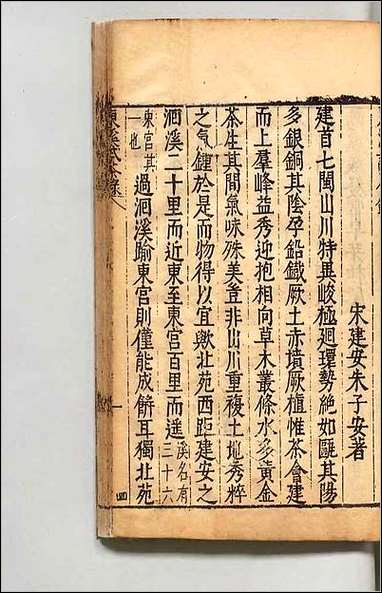 宋建安朱子安著
建首七閩山川特異峻極廻環勢絶如甌其陽
多銀銅其陰孕鉛鐵厥土赤墳厥植惟茶會建
而上羣峰益秀迎抱相向草木叢條水多黃金
茶生其間氣味殊美豈非山川重複土地秀粹
之氣鍾於是而物得以宜歟北苑西距建安之
洄溪二十里而近東至東宮百里而遙溪名有三十六
東宮其一也過洄溪踰東宮則僅能成餅耳獨北苑
東溪試茶錄
一
四